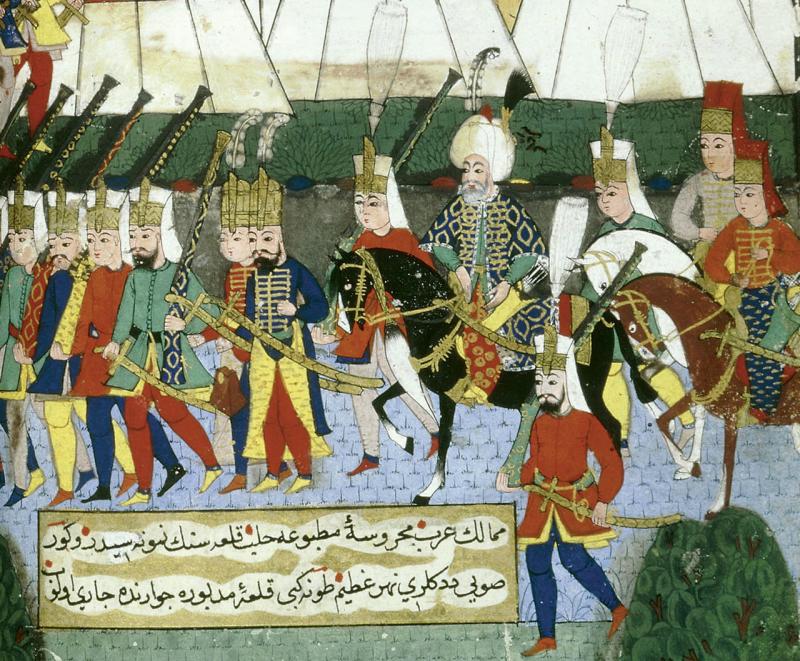 ممالك عرب محروسۀ مطبوعه حلبك قلعه سنك نمونه سيدر و كور
صويى ددكلري نهر عظيم طونه كبي قلعۀ مدبوره جوارنده جاري اولوب